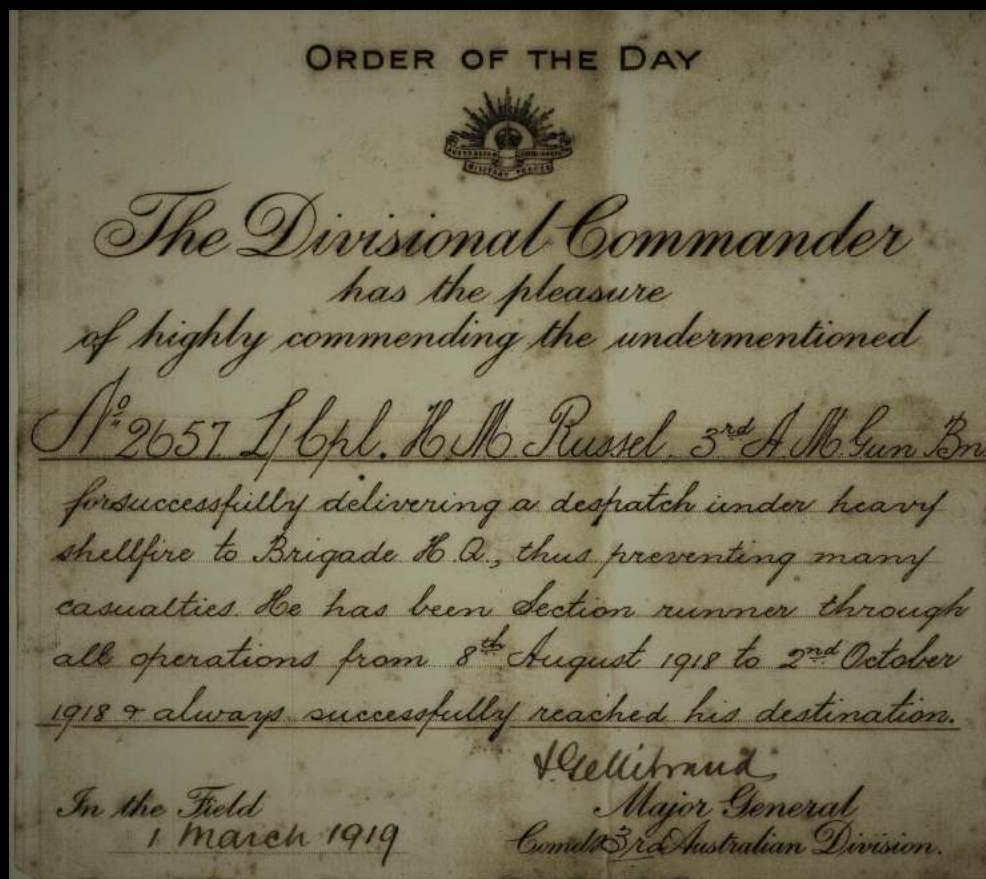 ORDER OF THE DAY
AUSTRALIAN COMMONWEALTH
MILITARY FORCES
The Divisional Commander
has the pleasure
of highly commending the undermentioned
No. 2657. L/Cpl. H. M. Russel. 3rd A. M. Gun Bn.
for successfully delivering a despatch under heavy
shellfire to Brigade H. Q., thus preventing many
casualties. He has been Section runner through
all operations from 8th August 1918 to 2nd October
1918 & always successfully reached his destination.
J Gellibrand
In the Field
Major General
1 March 1919
Comdg 3rd Australian Division.